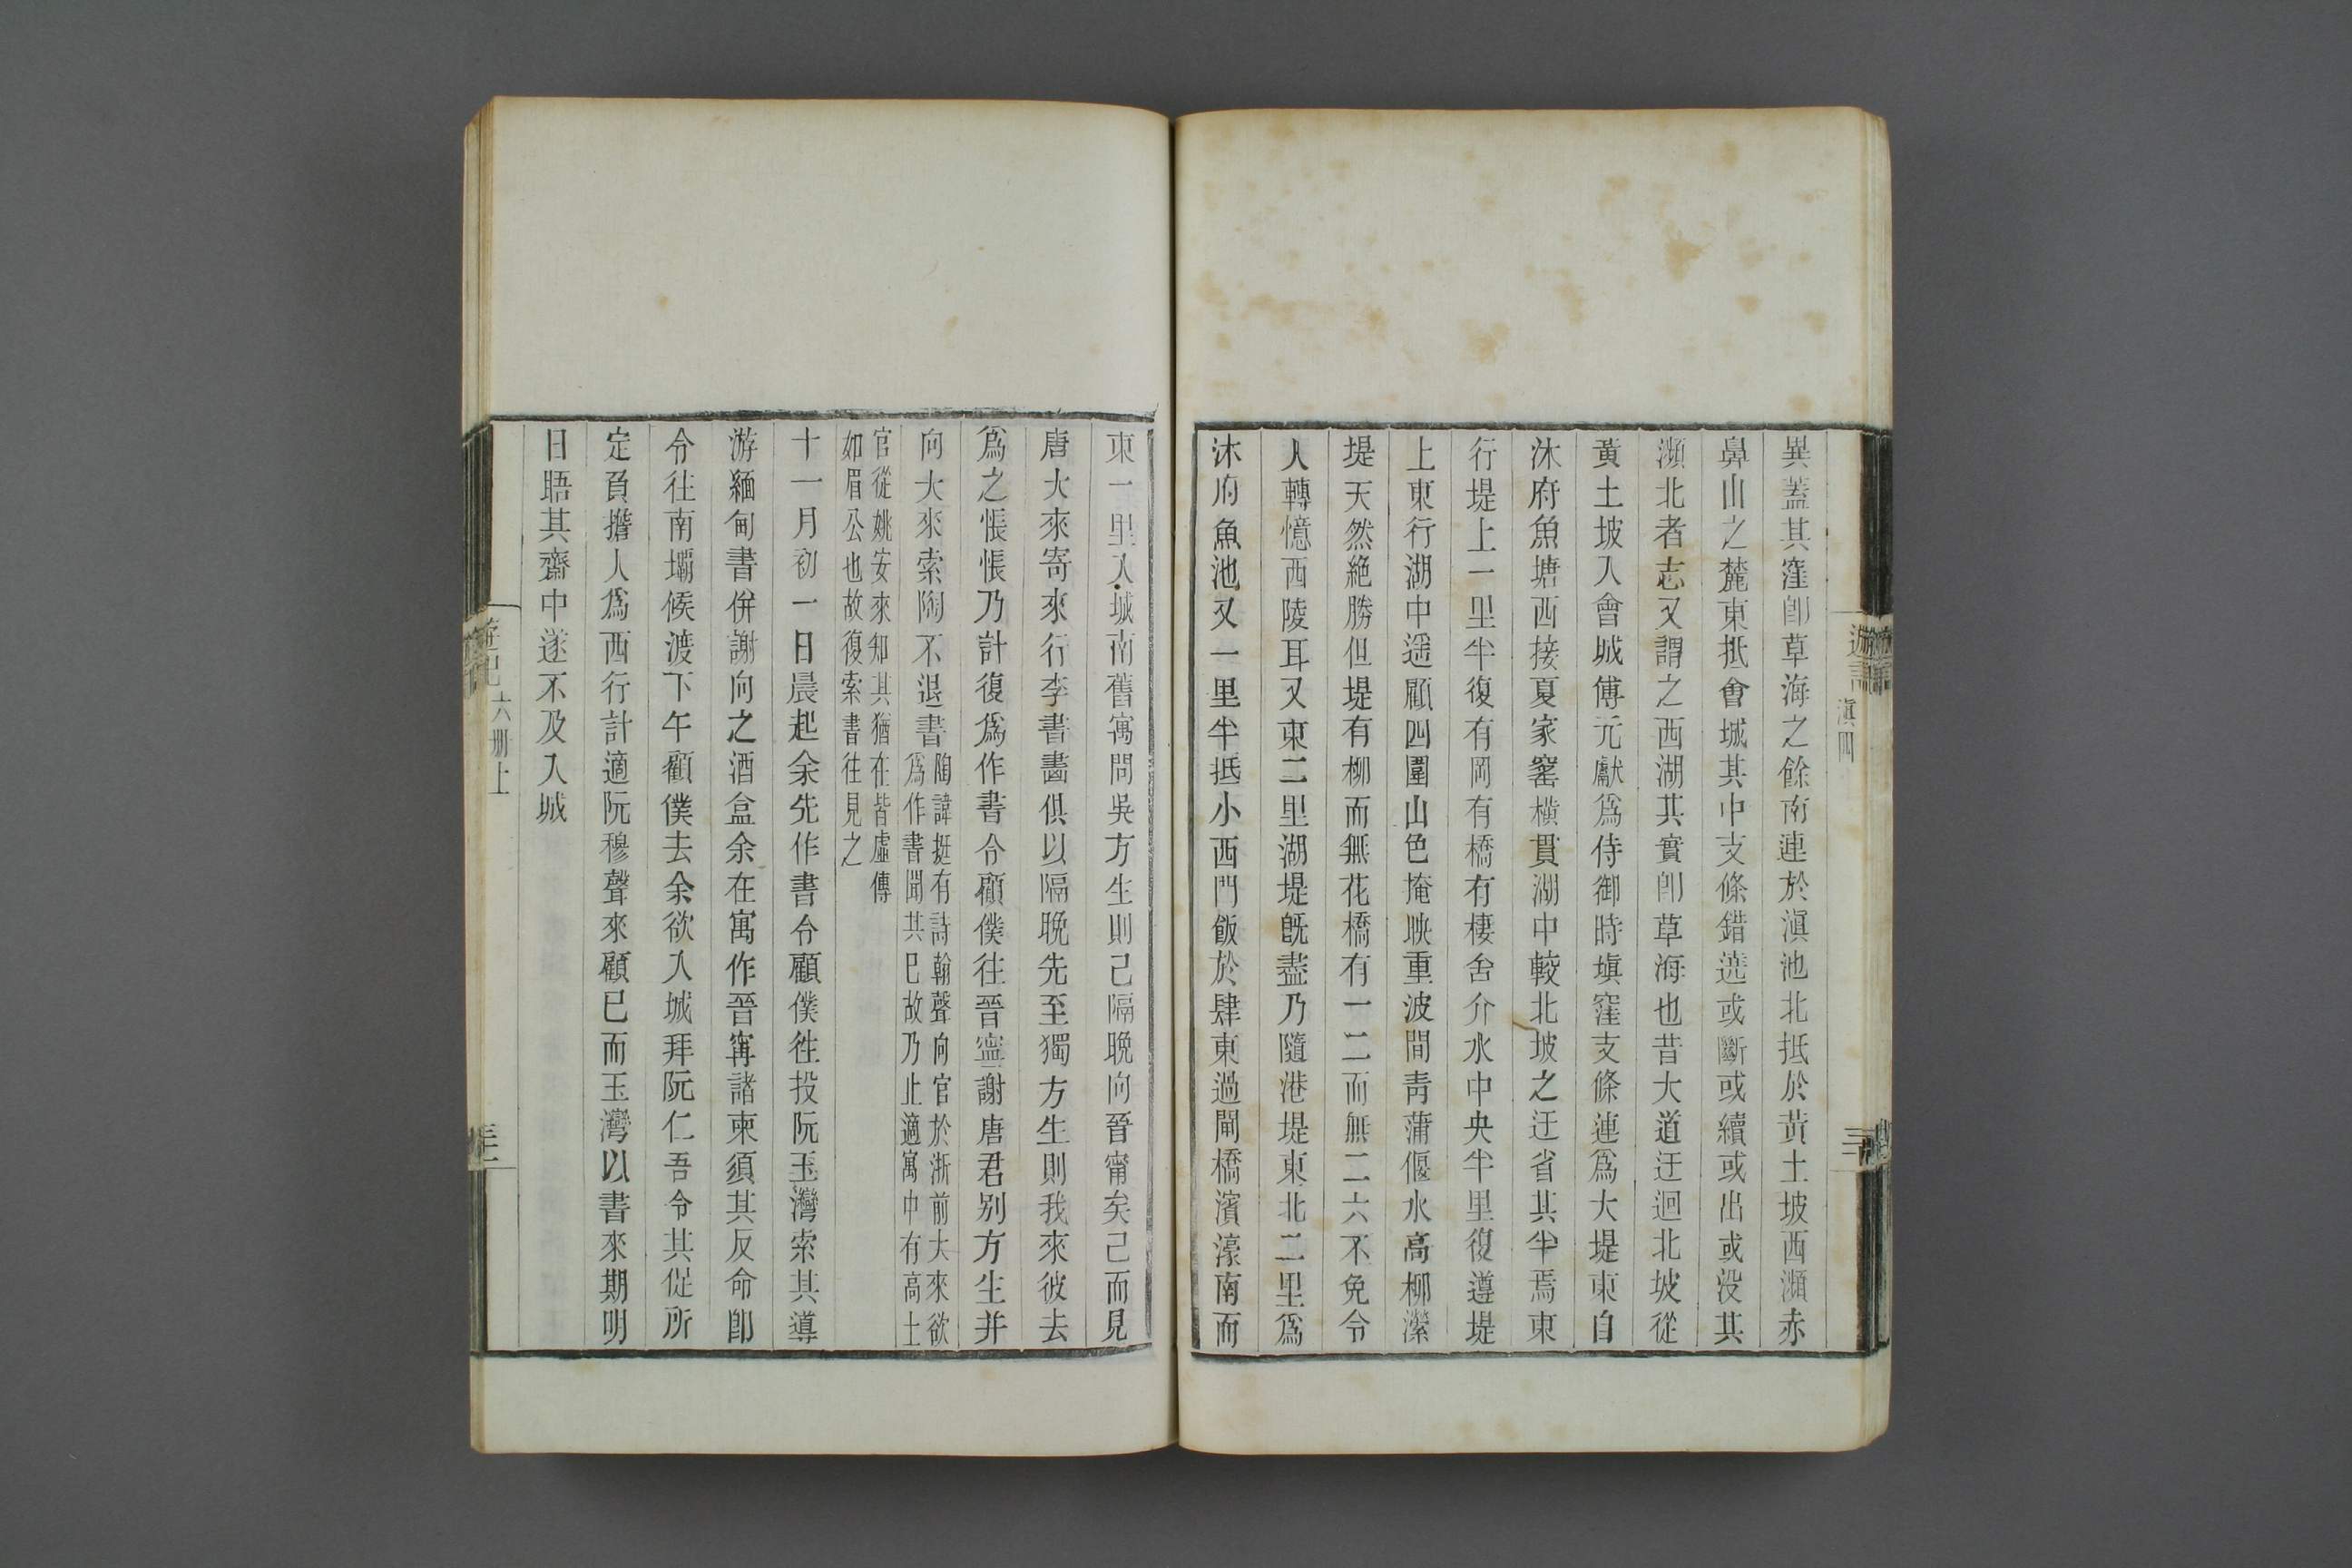 異蓋其窪卽草海之餘南連於滇池北抵於黃土坡西瀕赤
鼻山之麓東抵會城其中支條錯遶或斷或續或出或没其
瀕北者志又謂之西湖其實卽草海也昔大道迂迴北坡從
黃土坡入會城傅元獻爲侍御時塡窪支條連爲大堤東自
沐府魚塘西接夏家窑橫貫湖中較北坡之迂省其半焉東
行堤上一里半復有岡有橋有棲舍介水中央半里復遵堤
上東行湖中遥顧四圍山色掩映重波間靑蒲偃水高柳瀠
堤天然絶勝但堤有柳而無花橋有一二而無二六不免令
人轉憶西陵耳又東二里湖堤旣盡乃隨港堤東北二里爲
沐府魚池又一里半抵小西門飯於肆東過閘橋濱濠南而
遊記 滇四
東一里入城南舊寓問吳方生則已隔晚向晉甯矣已而見
唐大來寄來行李書畫俱以隔晚先至獨方生則我來彼去
爲之悵悵乃計復爲作書令顧僕往晉寧謝唐君别方生并
向大來索陶不退書 陶諱挺有詩翰聲向官於浙前大來欲
爲作書聞其已故乃止適寓中有高士
官從姚安來知其猶在皆虛傳
如眉公也故復索書往見之
十一月初一日晨起余先作書令顧僕徃投阮玉灣索其導
游緬甸書併謝向之酒盒余在寓作晉寗諸柬須其反命卽
令往南壩候渡下午顧僕去余欲入城拜阮仁吾令其促所
定負擔人爲西行計適阮穆聲來顧已而玉灣以書來期明
日晤其齋中遂不及入城
遊記 六册上